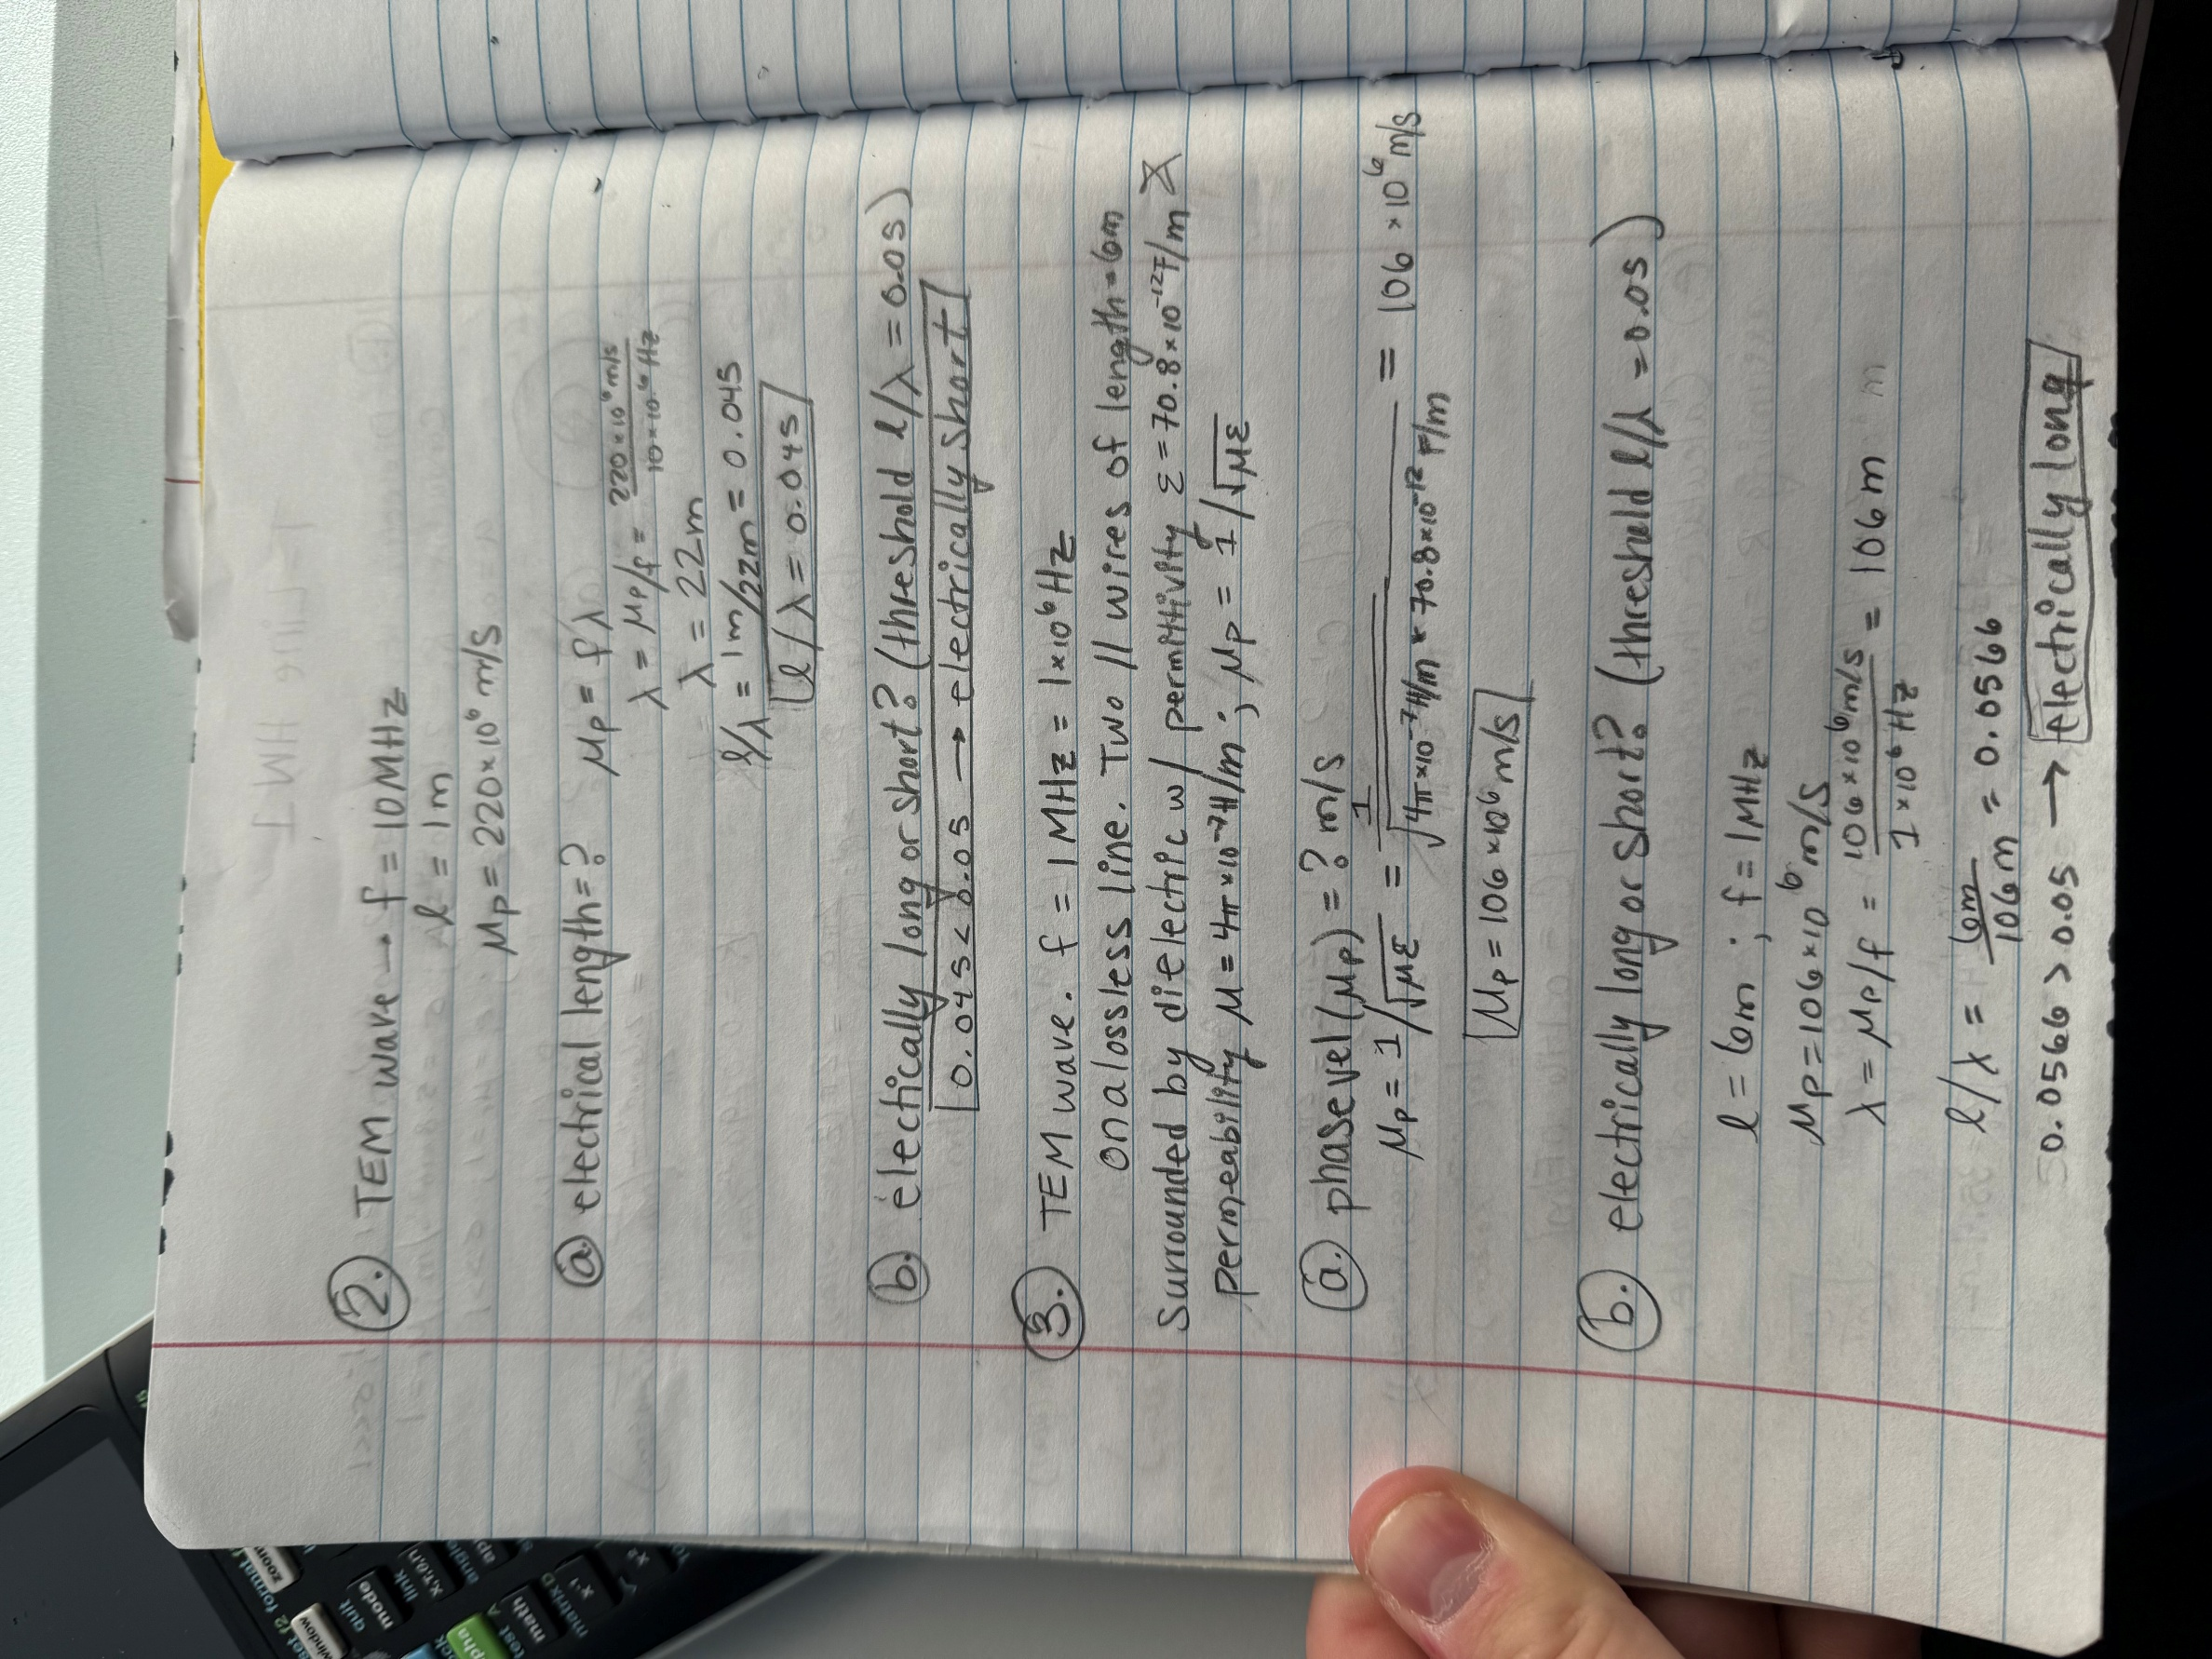 2. TEM wave → f = 10MHz
l = 1m
μp = 220×10⁶ m/s
a. electrical length = ? μp = fλ
λ = μp/f = 220×10⁶ m/s / 10×10⁶ Hz
λ = 22m
l/λ = 1m/22m = 0.045
l/λ = 0.045
b. electically long or short? (threshold l/λ = 0.05)
0.045 < 0.05 → electrically short
3. TEM wave. f = 1MHz = 1×10⁶ Hz
On a lossless line. Two // wires of length = 6m
Surrounded by dielectric w/ permittivity Σ = 70.8×10⁻¹² F/m
permeability μ = 4π×10⁻⁷ H/m ; μp = 1/√με
a. phase vel (μp) = ? m/s
μp = 1/√με = 1/√4π×10⁻⁷ H/m × 70.8×10⁻¹² F/m = 106×10⁶ m/s
μp = 106×10⁶ m/s
b. electrically long or short? (threshold l/λ = 0.05)
l = 6m ; f = 1MHz
μp = 106×10⁶ m/s
λ = μp/f = 106×10⁶ m/s / 1×10⁶ Hz = 106m
l/λ = 6m/106m = 0.0566
0.0566 > 0.05 → electrically long
zoom
format
f2
quit
mode
link
X,T,θ,n
window
math
test
A
matrix
D
x⁻¹
angle
x²